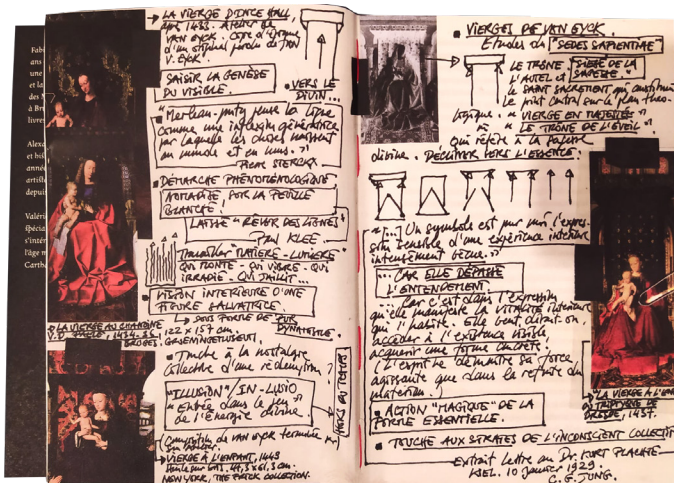 Fabi
ans
une
et la
des
à Br
livre
Alexa
et hi
année
artill
depui
Valéri
spécia
s'inté
l'âge m
Carth
LA VIERGE D'INCE HALL,
1433. ATELIER DE
VAN EYCK. Copie d'époque
d'un original perdu de Jan
V. EYCK.
SAISIR LA GENÈSE
DU VISIBLE.
VERS LE
DIVIN...
"Merleau-Ponty pense la ligne
comme une inflexion génératrice
par laquelle les choses naissent
au monde et en nous."
PIERRE STERCKX
DÉMARCHE PHÉNOMÉNOLOGIQUE.
NOMADISME, SUR LA FEUILLE
BLANCHE.
LAISSE "REVER DES LIGNES"
PAUL KLEE.
Travailler "MATIÈRE-LUMIÈRE"
QUI MONTE - QUI VIBRE - QUI
IRRADIE - QUI JAILLIT...
VISION INTERIEURE D'UNE
FIGURE SALVATRICE.
SOUS FORME DE "PUR
DYNAMISME.
LA VIERGE AU CHANOINE
V.D "PAELE", 1434-36.
122 x 157 cm.
BRUGES. GROENINGEMUSEUM.
Touche à la nostalgie
collective d'une rédemption ?
"ILLUSION"/IN-LUSIO
"Entrée dans le jeu"
de l'Énergie divine.
HORS DU TEMPS
Composition de VAN EYCK terminée par
son atelier.
VIERGE À L'ENFANT, 1443
Huile sur bois. 47,3 x 61,3 cm.
NEW YORK, THE FRICK COLLECTION.
VIERGES DE VAN EYCK.
Etudes du "SEDES SAPIENTIAE"
LE TRÔNE: "SIEGE DE LA
SAGESSE."
L'AUTEL et
le SAINT SACREMENT qui constituent
le point central sur le plan théo-
logique. "VIERGE EN MAJESTÉ"
"LE TRÔNE DE L'ÉVEIL"
qui réfère à la nature
divine. DÉCLINER VERS L'ESSENCE.
"[...] Un symbole est pour moi l'expres-
sion sensible d'une expérience intérieure
intensément vécue."
... CAR ELLE DÉPASSE
L'ENTENDEMENT.
Car c'est dans l'expression
qu'elle manifeste la VITALITÉ intérieure
qui l'habite. Elle veut dirait-on,
accéder à l'existence visible,
acquérir une forme concrète.
(L'esprit ne démontre sa force
agissante que dans la refonte du
matériau.)
ACTION "MAGIQUE" DE LA
FORME ESSENTIELLE.
TOUCHE AUX STRATES DE L'INCONSCIENT COLLECTIF
"LA VIERGE A L'ENFANT
TRIPTYQUE DE
DRESDE, 1437.
Extrait Lettre au Dr. KURT PLACHTE.
KIEL. 10 Janvier 1929.
C. G. JUNG.